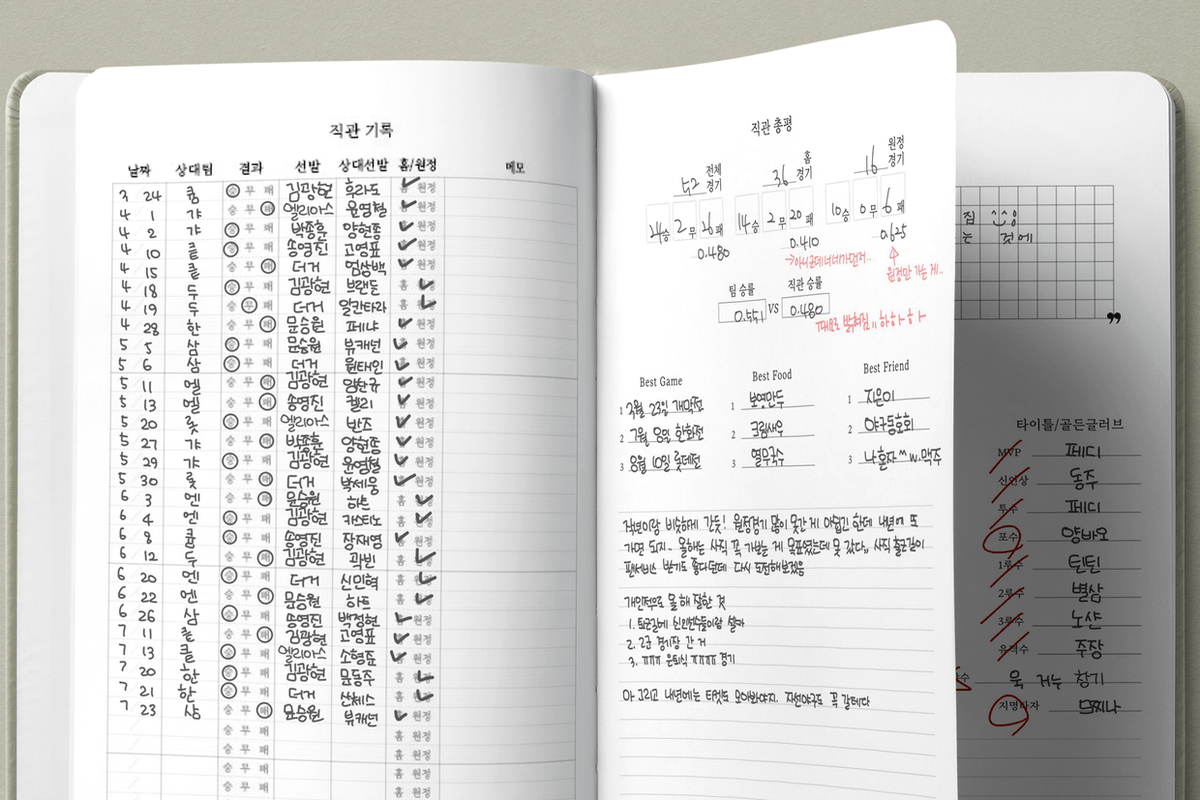 직관 기록
날짜 상대팀 결과 선발 상대선발 홈/원정 메모
3 24 쿰 승 무 패 김광현 후라도 홈 원정
4 1 갸 승 무 패 엘리아스 윤영철 홈 원정
4 2 갸 승 무 패 박종훈 양현종 홈 원정
4 10 킅 승 무 패 송영진 고영표 홈 원정
4 15 킅 승 무 패 더거 엄상백 홈 원정
4 18 두 승 무 패 김광현 브랜든 홈 원정
4 19 두 승 무 패 더거 알칸타라 홈 원정
4 28 한 승 무 패 문승원 페냐 홈 원정
5 5 삼 승 무 패 문승원 뷰캐넌 홈 원정
5 6 삼 승 무 패 더거 원태인 홈 원정
5 11 엘 승 무 패 김광현 임찬규 홈 원정
5 13 엘 승 무 패 송영진 켈리 홈 원정
5 20 롯 승 무 패 엘리아스 반즈 홈 원정
5 27 갸 승 무 패 박종훈 양현종 홈 원정
5 29 갸 승 무 패 김광현 윤영철 홈 원정
5 30 롯 승 무 패 더거 박세웅 홈 원정
6 3 엔 승 무 패 문승원 하트 홈 원정
6 4 엔 승 무 패 김광현 카스타노 홈 원정
6 8 쿰 승 무 패 송영진 장재영 홈 원정
6 12 두 승 무 패 김광현 곽빈 홈 원정
6 20 엔 승 무 패 더거 신민혁 홈 원정
6 22 엔 승 무 패 문승원 하트 홈 원정
6 26 삼 승 무 패 송영진 백정현 홈 원정
7 11 킅 승 무 패 김광현 고영표 홈 원정
7 13 킅 승 무 패 엘리아스 소형준 홈 원정
7 20 한 승 무 패 김광현 문동주 홈 원정
7 21 한 승 무 패 더거 산체스 홈 원정
7 23 삼 승 무 패 문승원 뷰캐넌 홈 원정
승 무 패 홈 원정
승 무 패 홈 원정
승 무 패 홈 원정
승 무 패 홈 원정
직관 총평
52 전체 경기 36 홈 경기 16 원정 경기
24승 2무 26패 14승 2무 20패 10승 0무 6패
0.480 0.410 0.625
→아니 근데 너네가 먼저..
원정만 가는 게..
팀 승률 직관 승률
0.551 VS 0.480
하하하
Best Game Best Food Best Friend
1 3월 23일 개막전 1 보영만두 1 지은이
2 7월 8일 한화전 2 크림새우 2 야구동호회
3 8월 10일 롯데전 3 열무국수 3 나 혼자^^ w.맥주
작년이랑 비슷하게 간듯! 원정경기 많이 못간 게 아쉽긴 한데 내년에 또
가면 되지~ 올해는 사직 꼭 가보는 게 목표였는데 못 갔다,, 사직 출근길이
팬서비스 받기도 좋다던데 다시 도전해보겠음
개인적으로 올해 잘한 것
1. 퇴근길에 신인선수들이랑 셀카
2. 2군 경기장 간 거
3. ㅠㅠㅠ 은퇴식 ㅠㅠㅠㅠ 경기
아 그리고 내년에는 티켓도 모아봐야지. 자선야구도 꼭 갈테다
집
는 것에
”
타이틀/골든글러브
MVP 페디
신인상 동주
투수 페디
포수 양바오
1루수 틴틴
2루수 별삼
3루수 노샨
유격수 주장
욱 거누 창기
지명타자